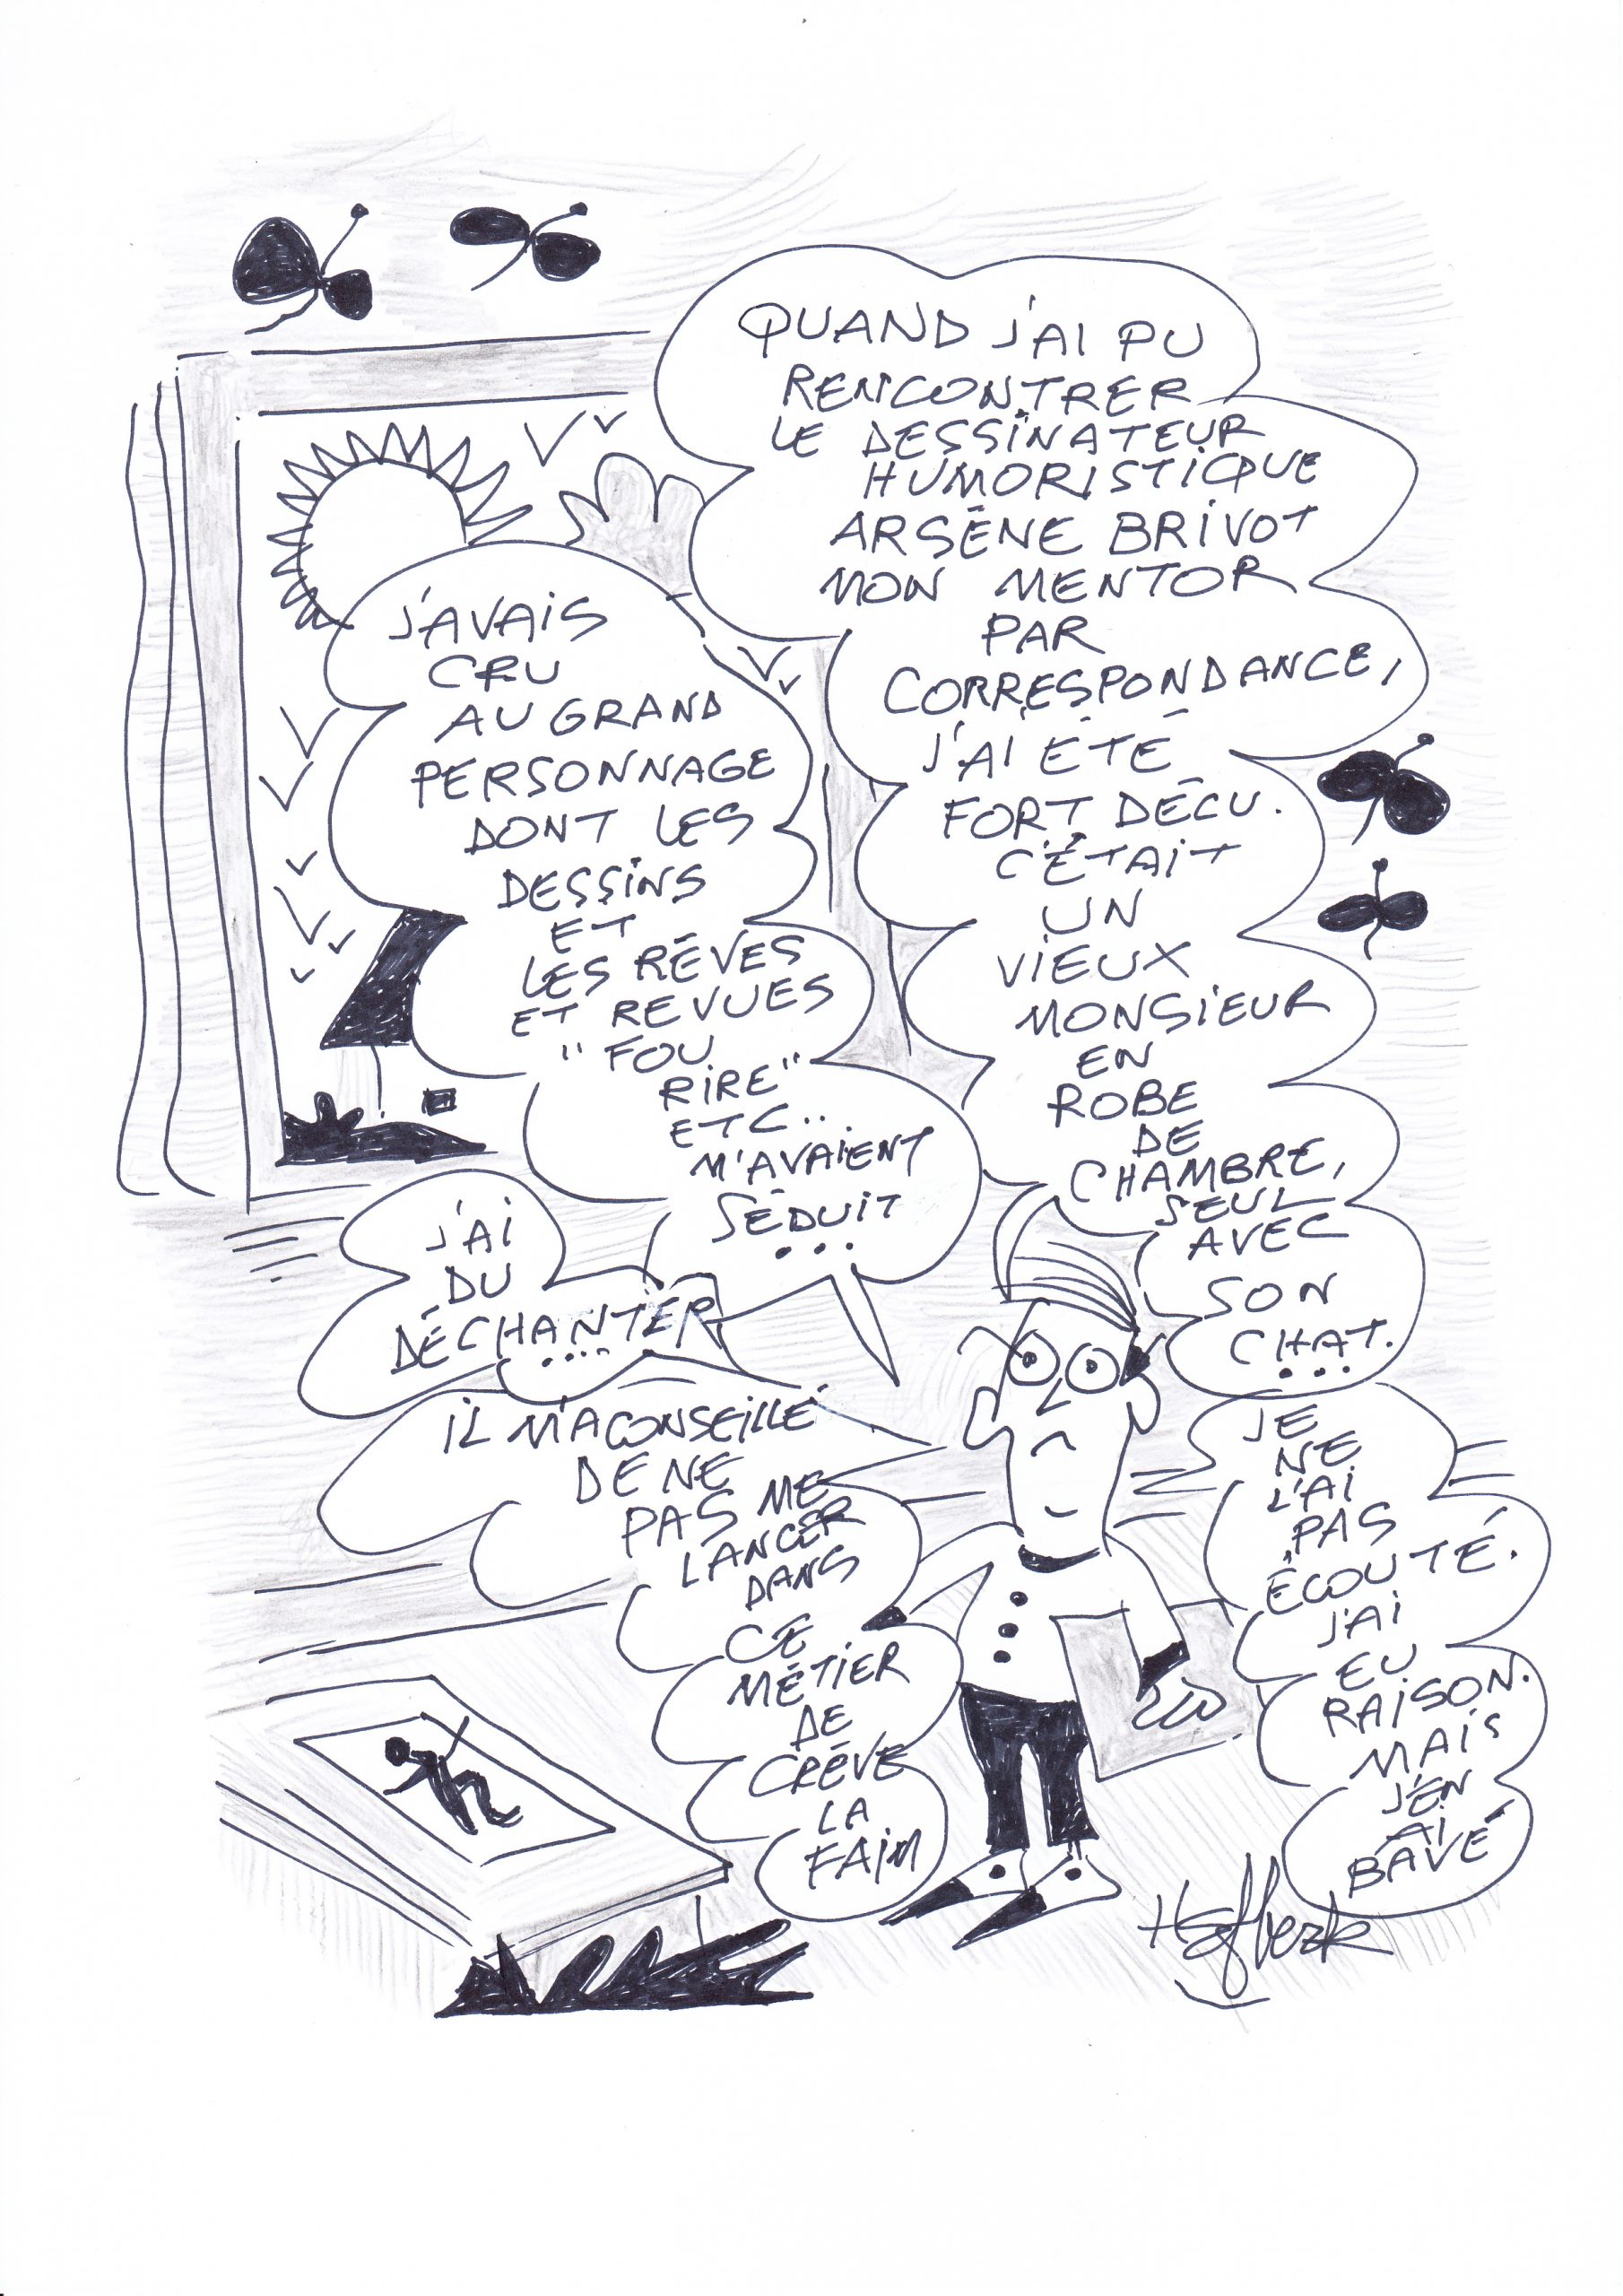 QUAND J'AI PU
RENCONTRER
LE DESSINATEUR
HUMORISTIQUE
ARSÈNE BRIVOT
MON MENTOR
PAR
CORRESPONDANCE,
J'AI ÉTÉ
FORT DÉCU.
C'ÉTAIT
UN
VIEUX
MONSIEUR
EN
ROBE
DE
CHAMBRE,
SEUL
AVEC
SON
CHAT.
...
J'AVAIS
CRU
AU GRAND
PERSONNAGE
DONT LES
DESSINS
ET
LES RÊVES
ET REVUES
"FOU
RIRE"
ETC...
M'AVAIENT
SÉDUIT
...
J'AI
DU
DÉCHANTER
....
IL M'A CONSEILLÉ
DE NE
PAS ME
LANCER
DANS
CE
MÉTIER
DE
CRÈVE
LA
FAIM
JE
NE
L'AI
PAS
ÉCOUTÉ.
J'AI
EU
RAISON.
MAIS
J'EN
AI
BAVÉ